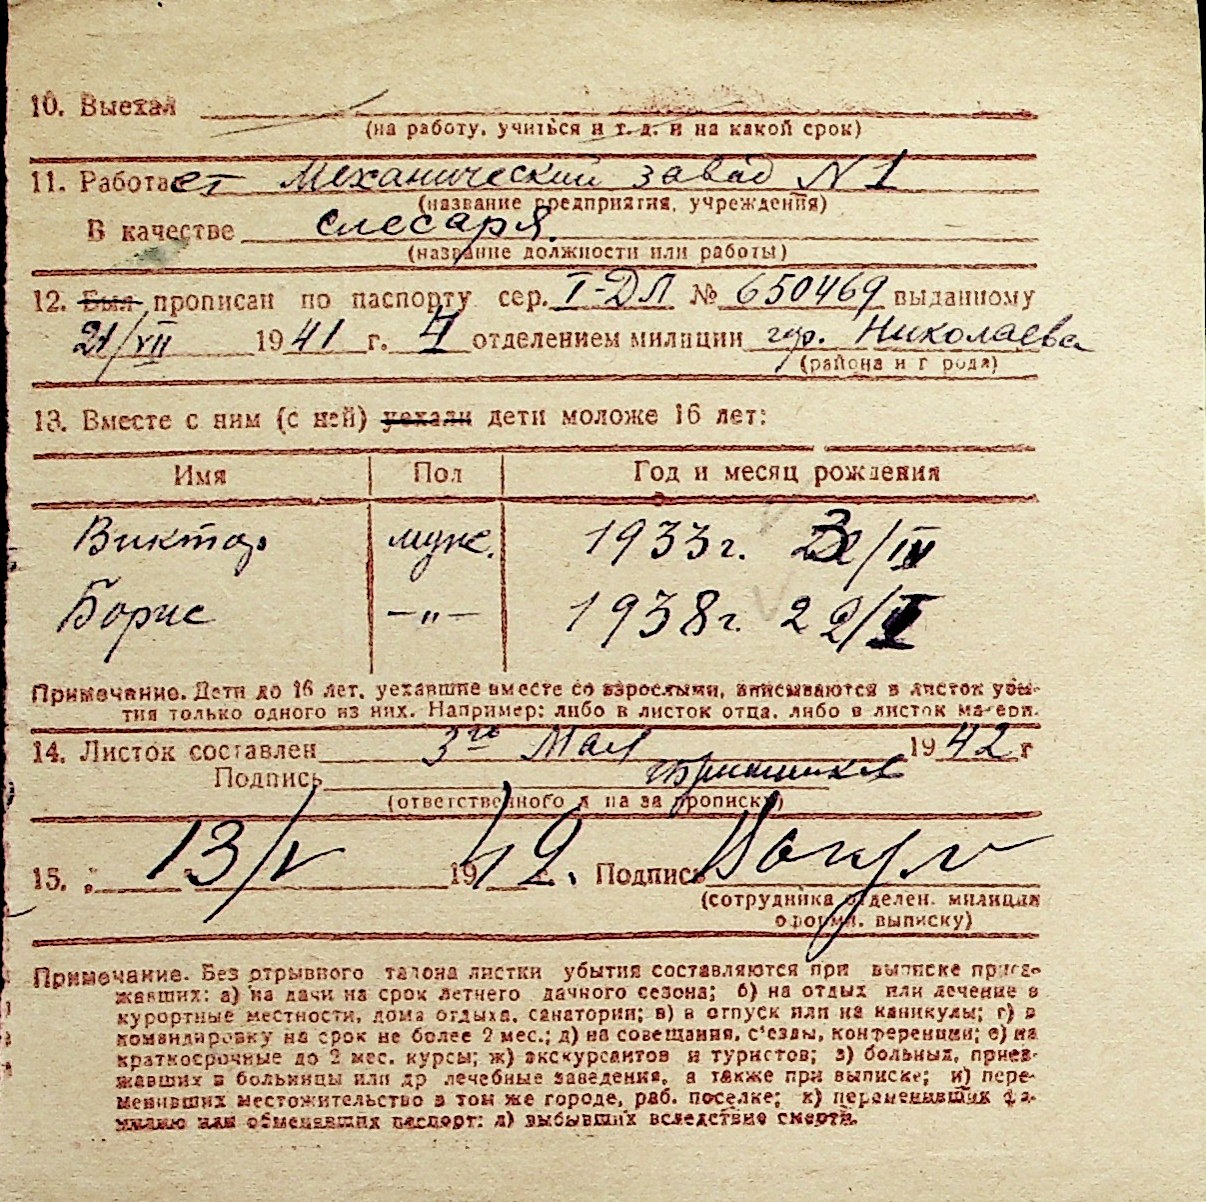 10. Выехал
(на работу, учиться и т. д. и на какой срок)
11. Работает Механический завод N 1
(название предприятия, учреждения)
В качестве слесаря.
(название должности или работы)
12. Был прописан по паспорту сер. I-ДЛ № 650469 выданному
21/VII 1941 г. 4 отделением милиции гор. Николаева
(района и города)
13. Вместе с ним (с ней) уехали дети моложе 16 лет:
Имя Пол Год и месяц рождения
Виктор муж. 1933 г. /IV
Борис —„— 1938 г. 22/
Примечание. Дети до 16 лет, уехавшие вместе со взрослыми, вписываются в листок убы-
тия только одного из них. Например: либо в листок отца, либо в листок матери.
14. Листок составлен 3го Мая 1942 г
Подпись
(ответственного л на за прописку)
15. „ 13/V 1942. Подпись
(сотрудника отделен. милиции
оформ. выписку)
Примечание. Без отрывного талона листки убытия составляются при выписке приез-
жавших: а) на дачи на срок летнего дачного сезона; б) на отдых или лечение в
курортные местности, дома отдыха, санатории; в) в отпуск или на каникулы; г) в
командировку на срок не более 2 мес.; д) на совещания, с'езды, конференции; е) на
краткосрочные до 2 мес. курсы; ж) экскурсантов и туристов; з) больных, приез-
жавших в больницы или др лечебные заведения, а также при выписке; и) пере-
менивших местожительство в том же городе, раб. поселке; к) переменивших фа-
милию или обменявших паспорт; л) выбывших вследствие смерти.